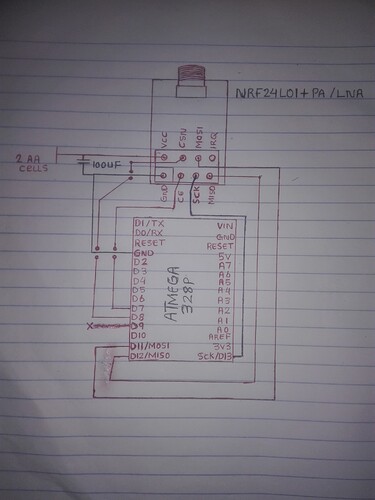 NRF24L01+PA/LNA
VCC
CSN
MOSI
IRQ
2 AA
CELLS
100UF
GND
CE
SCK
MISO
D1/TX
D0/RX
RESET
GND
D2
D3
D4
D5
D6
D7
D8
X
D9
D10
D11/MOSI
D12/MISO
ATMEGA
328P
VIN
GND
RESET
5V
A7
A6
A5
A4
A3
A2
A1
A0
AREF
3V3
SCK/D13